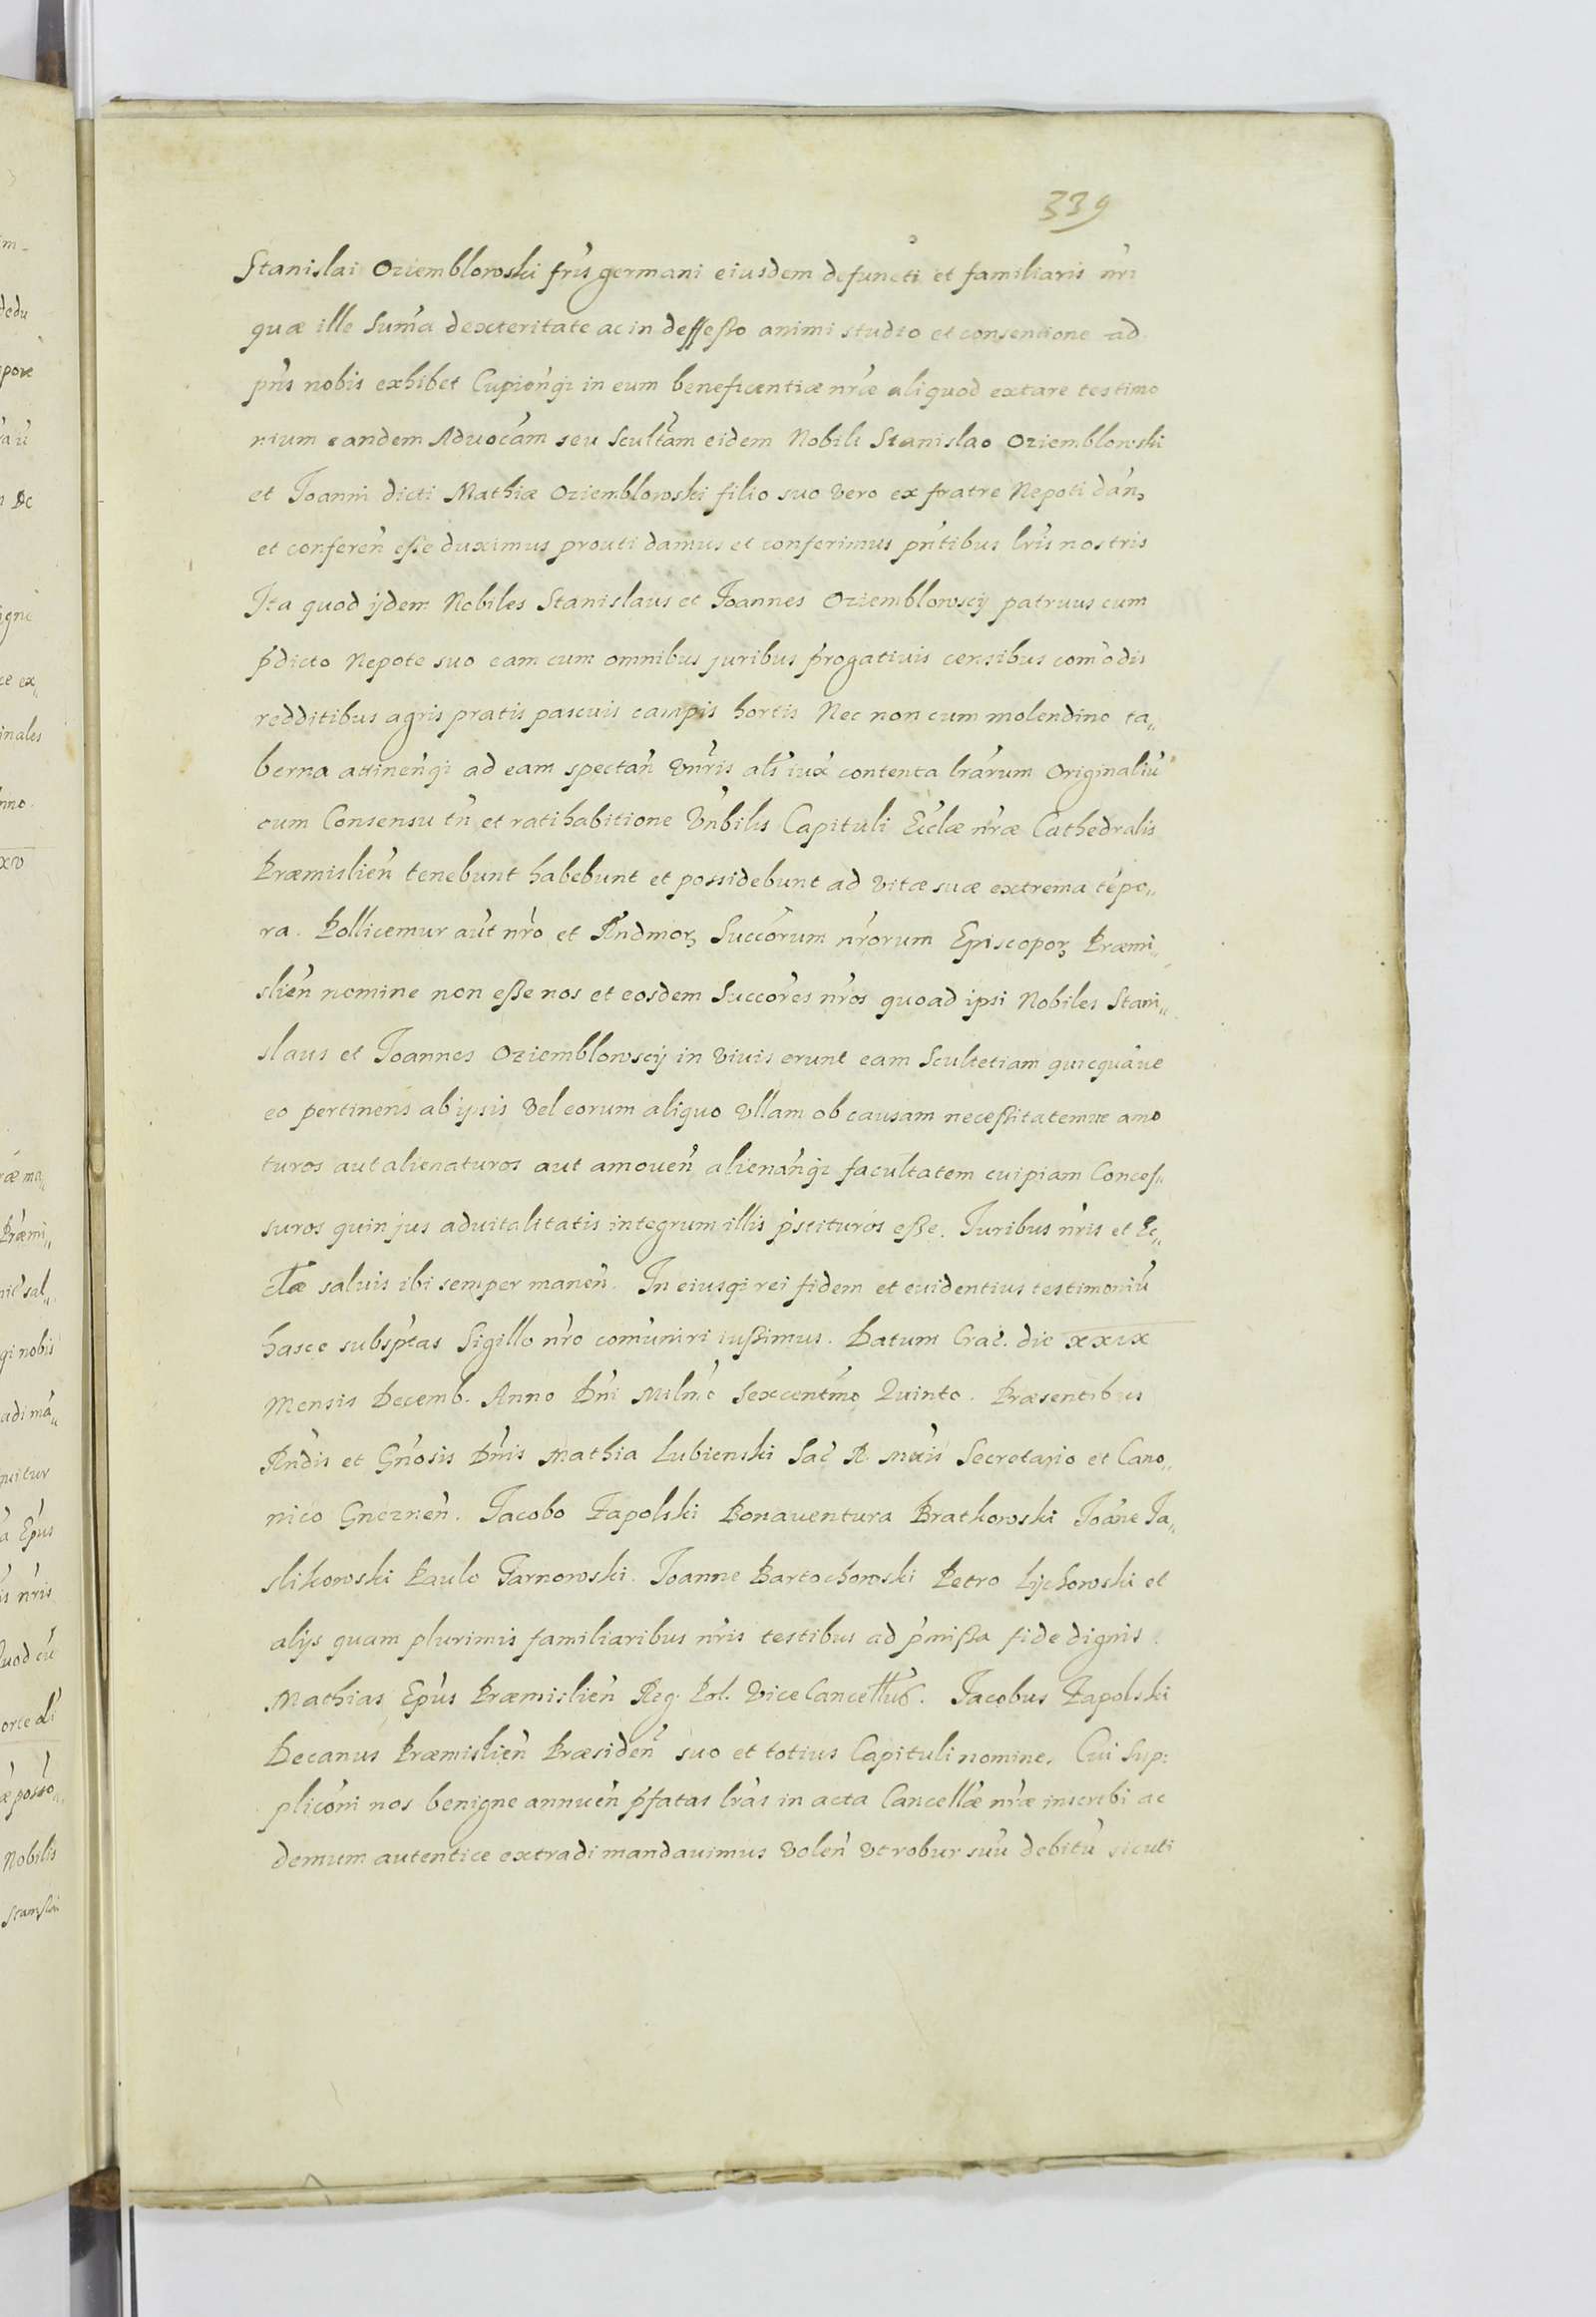 339
Stanislai Oziemblowski fris germani eiusdem defuncti et familiaris nri
quæ ille Suma dexteritate ac in deffeßo animi studio et consentione ad
pns nobis exhibet Cupiengi in eum beneficentiæ nræ aliquod extare testimo
nium eandem Advocam seu Scultam eidem Nobili Stanislao Oziemblowski
et Joanni dicti Mathiæ Oziemblowski filio suo vero ex fratre Nepoti dan,
et conferen eße duximus prouti damus et conferimus pntibus lris nostris
Ita quod ijdem Nobiles Stanislaus et Joannes Oziemblowscij patruus cum
pdicto Nepote suo eam cum omnibus juribus progativis censibus comodis
redditibus agris pratis pascuis campis hortis Nec non cum molendino ta„
berna attinengi ad eam spectan vnris als iux contenta lrarum Originaliu
cum Consensu tn et ratihabitione Vnbilis Capituli Ecclæ nræ Cathedralis
Præmislien tenebunt habebunt et possidebunt ad vitæ suæ extrema tepo„
ra. Pollicemur aut nro et Rndmoꝝ Succorum nrorum Episcopoꝝ Præmi„
slien nomine non eße nos et eosdem Succores nros quoad ipsi Nobiles Stani„
slaus et Joannes Oziemblowscij in vivis erunt eam Scultetiam quicquave
eo pertinens ab ipsis vel eorum aliquo vllam ob causam neceßitatemve amo
turos aut alienaturos aut amouen alienangi facultatem cuipiam Conces„
suros quin jus aduitalitatis integrum illis pstituros eße. Juribus nris et Ec„
clæ saluis ibi semper manen. In eiusqi rei fidem et euidentius testimoniu
hasce subsptas Sigillo nro comuniri iußimus. Datum Crac. die xxix
Mensis Decemb. Anno Dni Milmo Sexcentmo Quinto. Præsentibus
Rndis et Gnosis Dnis Mathia Lubienski Sac R. Mtis Secretario et Cano„
nico Gneznen. Jacobo Zapolski Bonauentura Bratkowski Joane Ja„
slikowski Paulo Tarnowski. Joanne Bartochowski Petro Lychowski et
alijs quam plurimis familiaribus nris testibus ad pmißa fide dignis.
Mathias Epus Præmislien Reg. Pol. Vice Cancellus. Jacobus Zapolski
Decanus Præmislien Præsiden suo et totius Capituli nomine. Cui Sup:
pliconi nos benigne annuen pfatas lras in acta Cancellæ nræ inscribi ac
demum autentice extradi mandauimus volen vt robur suu debitu sicuti